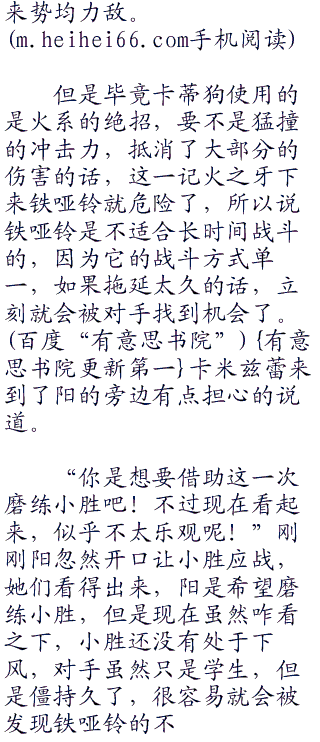 来势均力敌。
(m.heihei66.com手机阅读)
但是毕竟卡蒂狗使用的
是火系的绝招，要不是猛撞
的冲击力，抵消了大部分的
伤害的话，这一记火之牙下
来铁哑铃就危险了，所以说
铁哑铃是不适合长时间战斗
的，因为它的战斗方式单
一，如果拖延太久的话，立
刻就会被对手找到机会了。
(百度“有意思书院”){有意
思书院更新第一}卡米兹蕾来
到了阳的旁边有点担心的说
道。
“你是想要借助这一次
磨练小胜吧！不过现在看起
来，似乎不太乐观呢！”刚
刚阳忽然开口让小胜应战，
她们看得出来，阳是希望磨
练小胜，但是现在虽然咋看
之下，小胜还没有处于下
风，对手虽然只是学生，但
是僵持久了，很容易就会被
发现铁哑铃的不